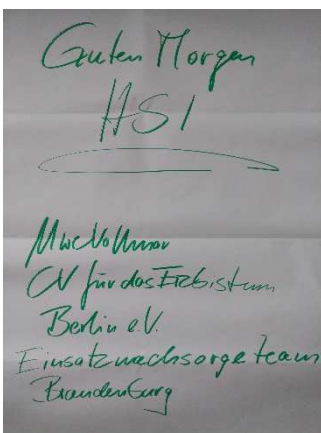 Guten Morgen
HS1
Uwe Vollmar
CV für das Erzbistum
Berlin e.V.
Einsatznachsorgeteam
Brandenburg